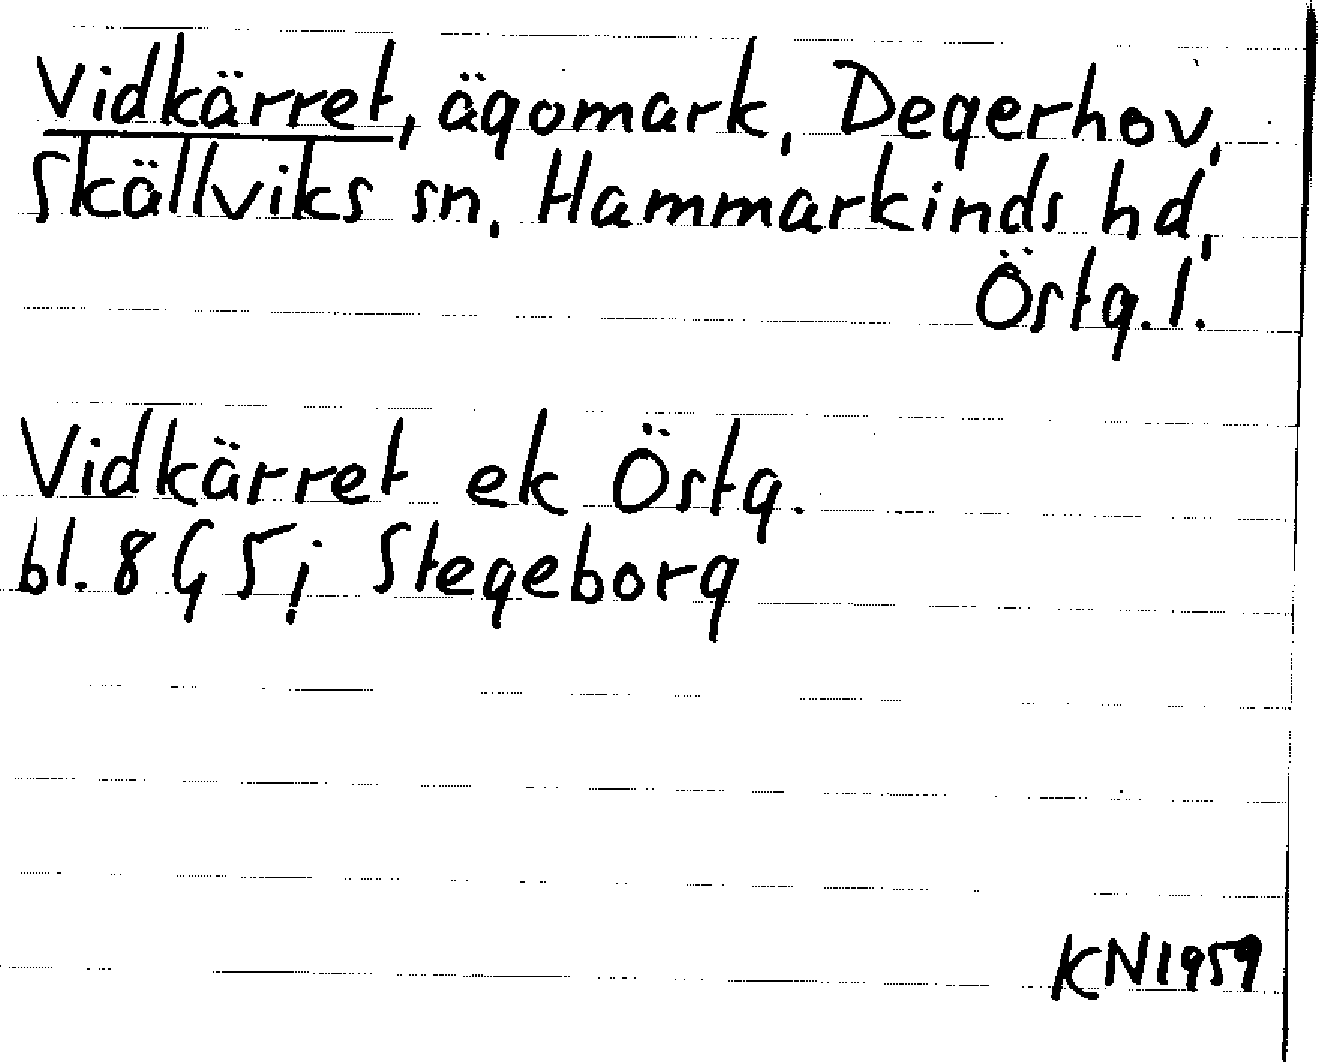 Vidkärret, ägomark, Degerhov,
Skällviks sn, Hammarkinds hd,
Östg.l.
Vidkärret ek Östg.
bl. 8G5j Stegeborg
KN1959